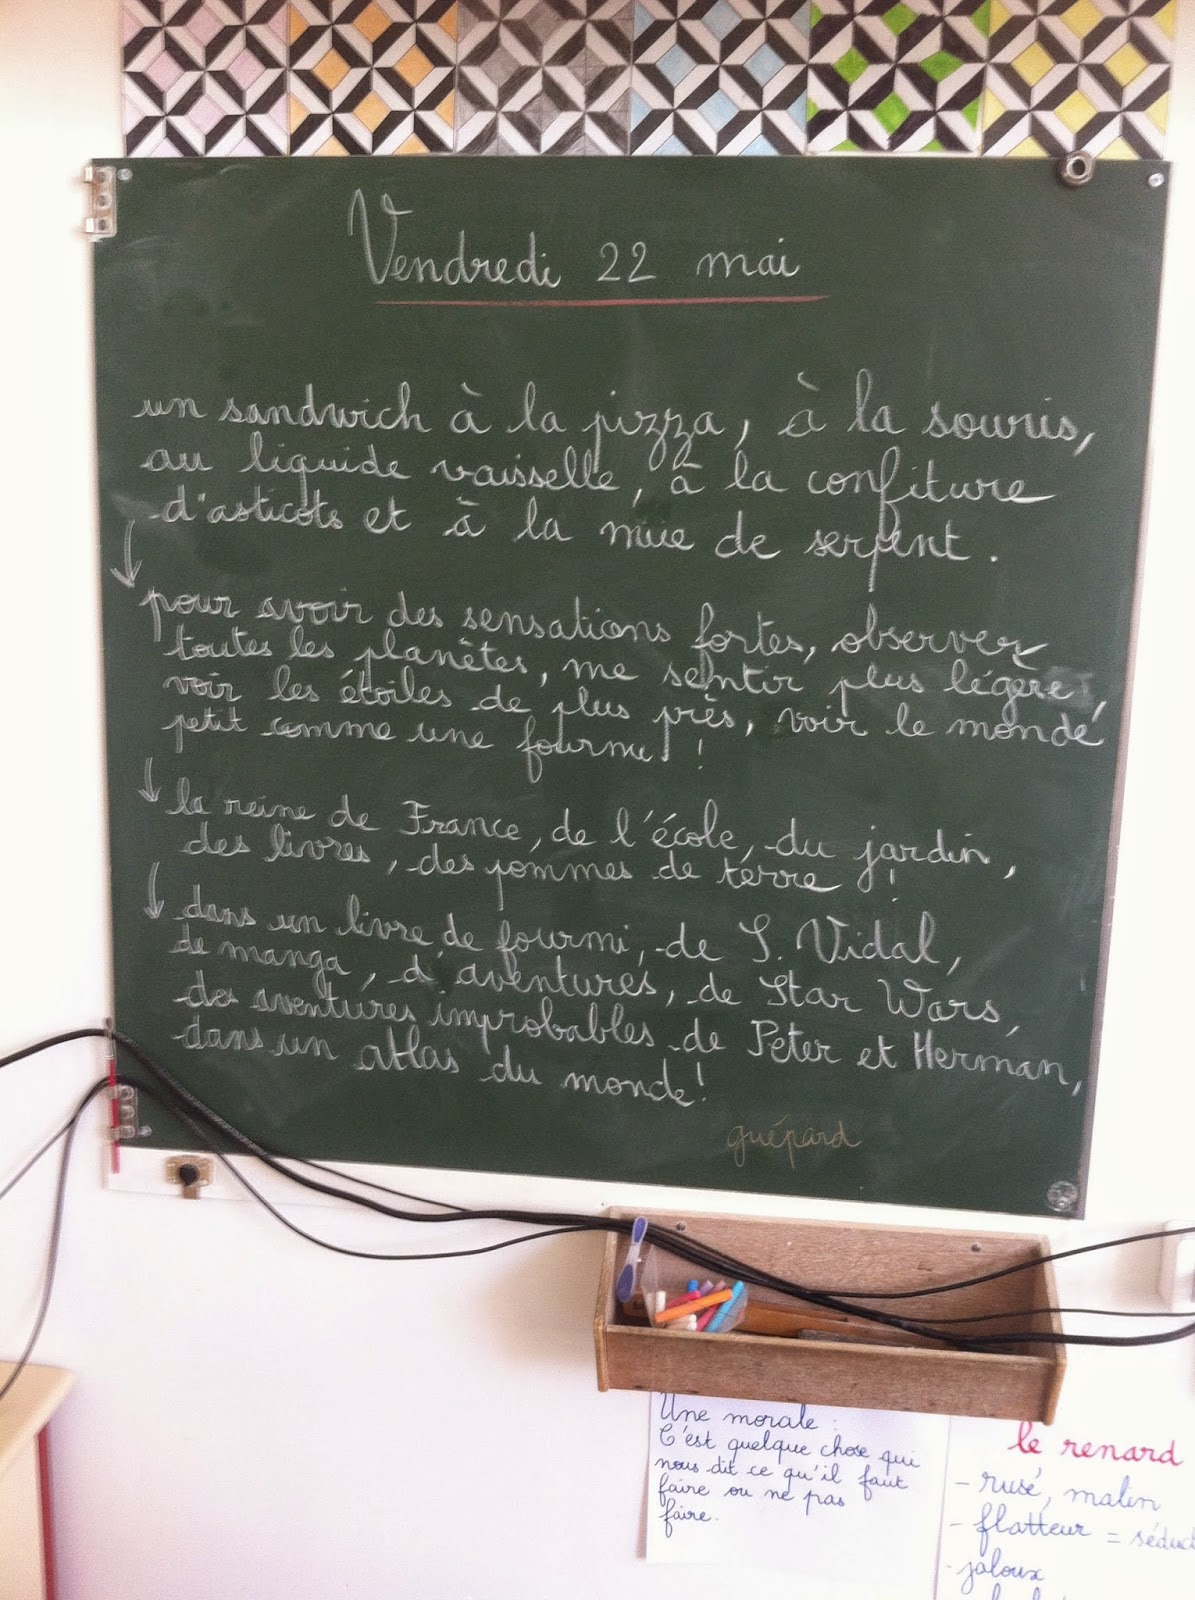 Vendredi 22 mai
un sandwich à la pizza, à la souris,
au liquide vaisselle, à la confiture
d'asticots et à la mue de serpent.
pour avoir des sensations fortes, observer
toutes les planètes, me sentir plus légère,
voir les étoiles de plus près, voir le monde
petit comme une fourmi !
la reine de France, de l'école, du jardin,
des livres, des pommes de terre !
dans un livre de fourmi, de S. Vidal,
de manga, d'aventures, de Star Wars,
des aventures improbables de Peter et Herman,
dans un atlas du monde !
guépard
Une morale :
C'est quelque chose qui
nous dit ce qu'il faut
faire ou ne pas
faire.
le renard
- rusé, malin
- flatteur = séduct
- jaloux